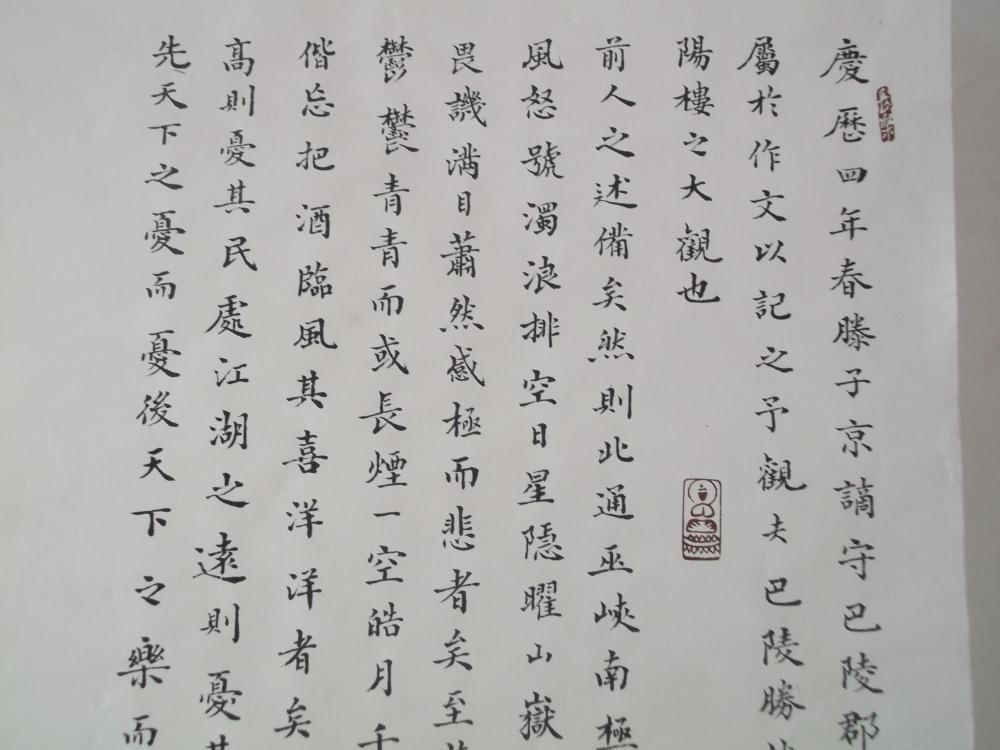 慶曆四年春滕子京謫守巴陵郡
屬於作文以記之予觀夫巴陵勝
陽樓之大觀也
前人之述備矣然則此通巫峽南極
風怒號濁浪排空日星隱曜山嶽
畏譏滿目蕭然感極而悲者矣至
鬱鬱青青而或長煙一空皓月千
偕忘把酒臨風其喜洋洋者矣
高則憂其民處江湖之遠則憂其
先天下之憂而憂後天下之樂而